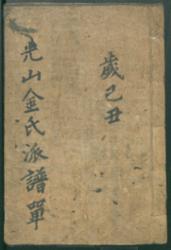 歲己丑
光山金氏派譜單